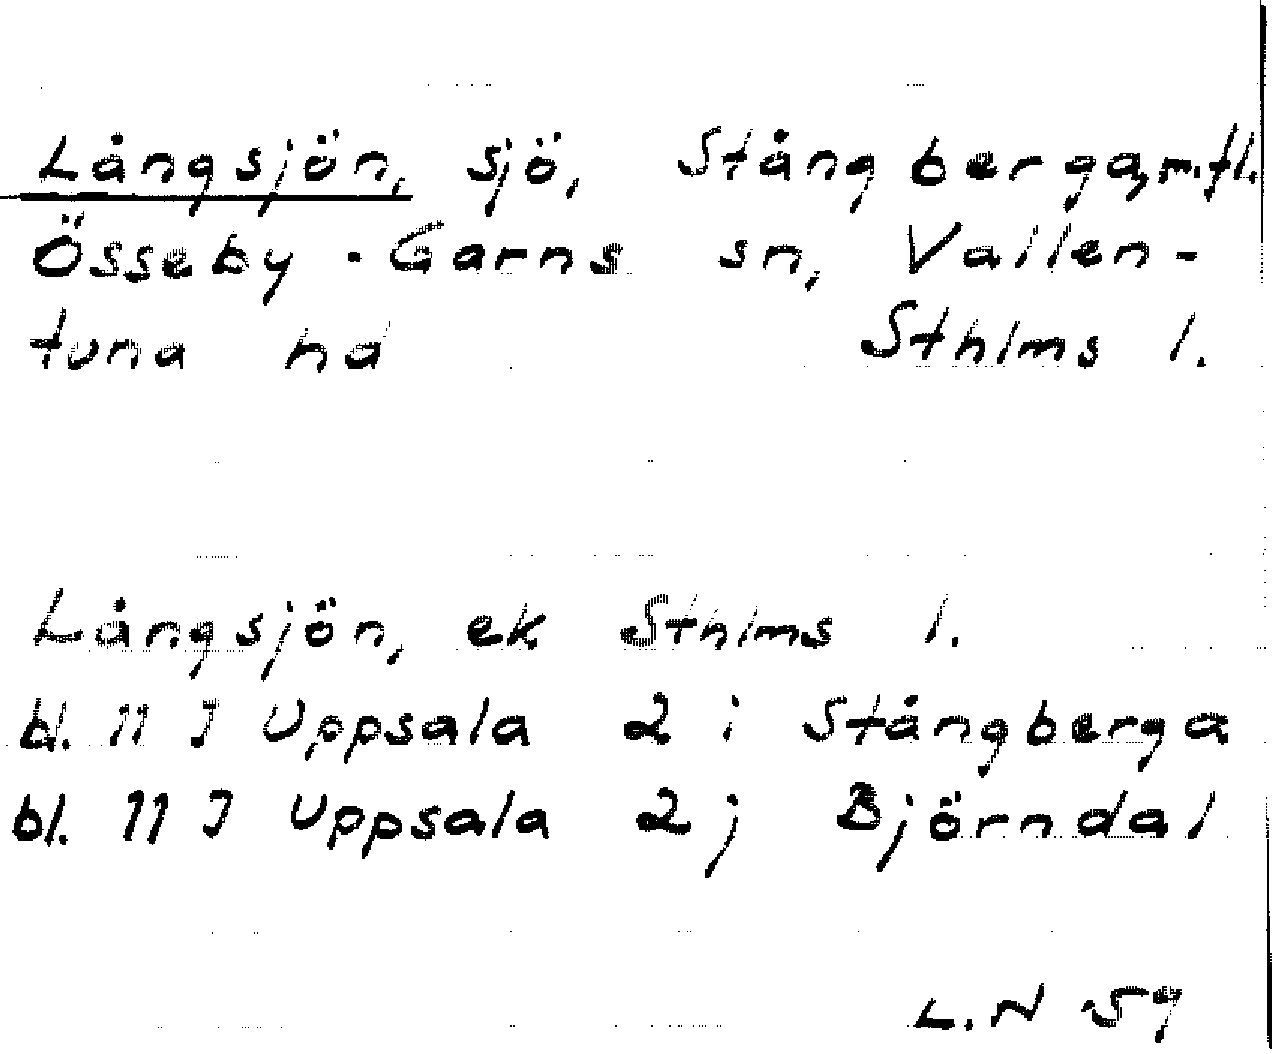 Långsjön, sjö, Stångberga, m.fl.
Össeby-Garns sn, Vallen-
tuna hd Sthlms l.
Långsjön, ek Sthlms l.
bl. 11 I Uppsala 2 i Stångberga
bl. 11 I Uppsala 2 j Björndal
L.N 59